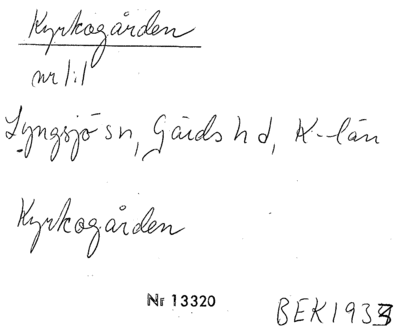 Kyrkogården
nr 1:1
Lyngsjö sn, Gärds hd, K-län
Kyrkogården
Nr 13320
BEK 1933